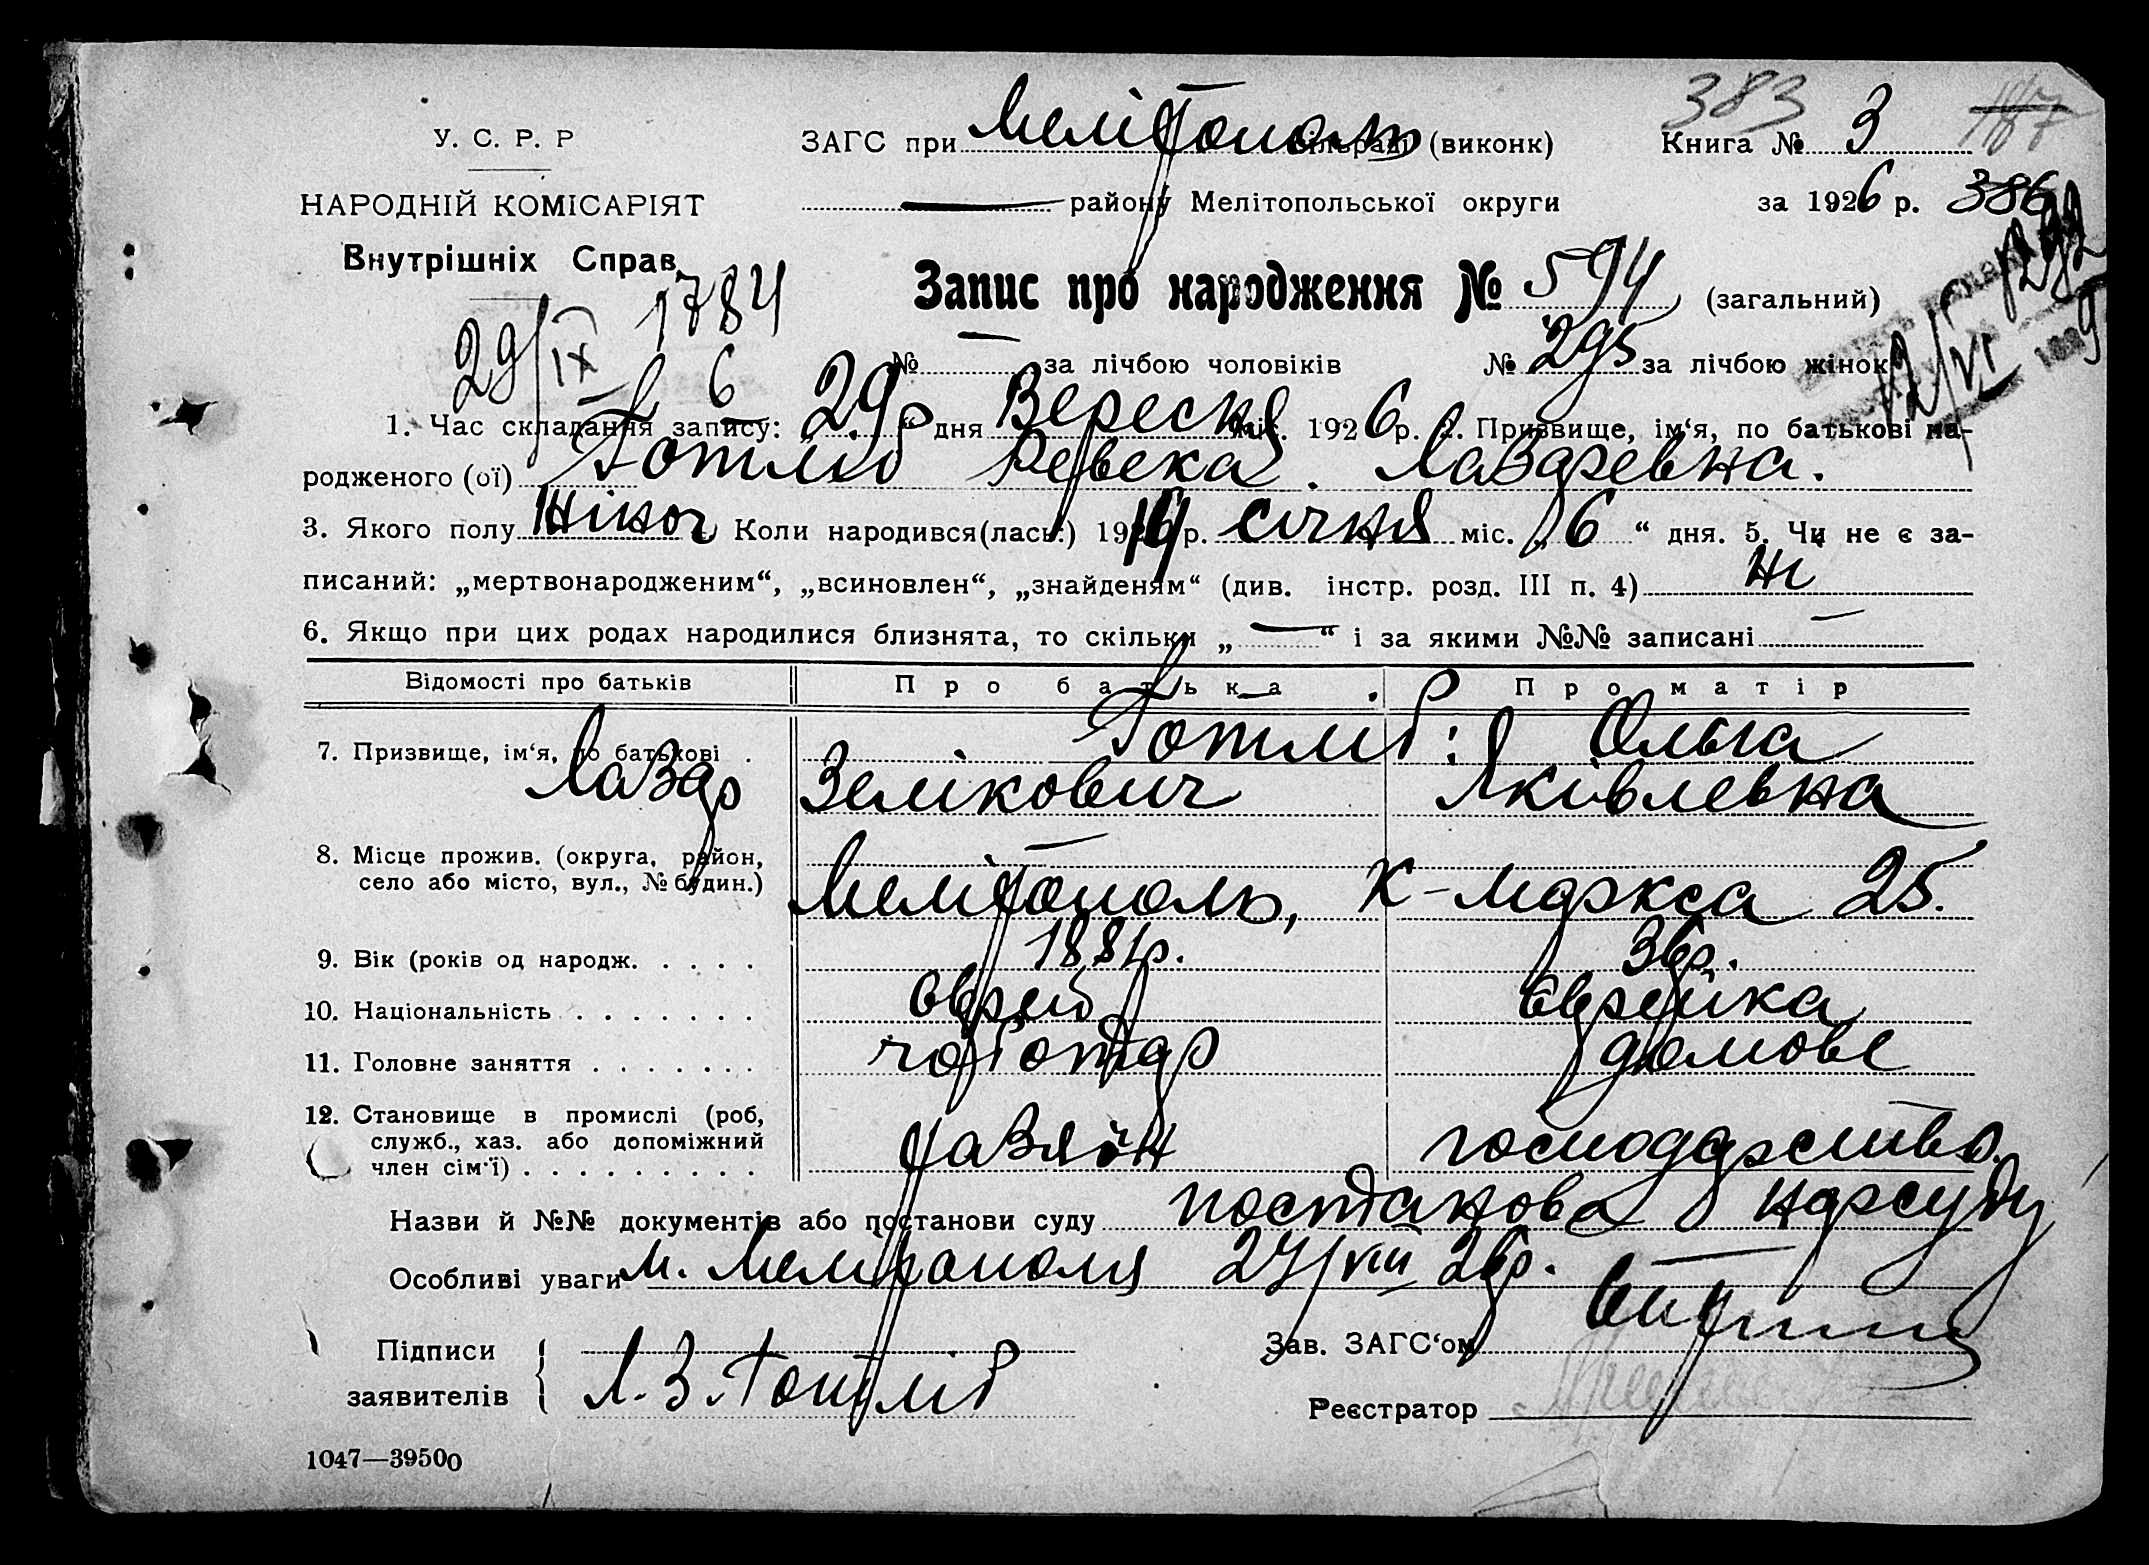 383
У. С. Р. Р
ЗАГС при Мелітополь сільраді (виконк)
Книга № 3
НАРОДНІЙ КОМІСАРІЯТ
— району Мелітопольської округи
за 1926 р. 386
Внутрішніх Справ
1784
Запис про народження № 594 (загальний)
29/IX 6
№ — за лічбою чоловіків № 295 за лічбою жінок
12/VI
1. Час складання запису: „29“ дня Вересня міс. 1926 р. 2. Призвище, ім‘я, по батькові на-
родженого (ої) Готліб Ревека Лазаревна.
3. Якого полу жіноч Коли народився(лась:) 19 р. січня міс. „16“ дня. 5. Чи не є за-
писаний: „мертвонародженим“, „всиновлен“, „знайденям“ (див. інстр. розд. III п. 4) ні
6. Якщо при цих родах народилися близнята, то скільки „—“ і за якими №№ записані —
Відомості про батьків Про батька Про матір
7. Призвище, ім‘я, по батькові . Готліб: Ольга
Лазар Зелікович Яківлевна
8. Місце прожив. (округа, район,
село або місто, вул., № будин.) Мелітополь, К-Маркса 25.
9. Вік (років од народж. . . . . 1881р. 36р.
10. Національність . . . . . . . Єврей Єврейка
11. Головне заняття . . . . . . . чоботар домове
12. Становище в промислі (роб,
служб., хаз. або допоміжний
член сім‘ї) . . . . . . . . . хазяїн господарство.
Назви й №№ документів або постанови суду постанова нарсуду
Особливі уваги м. Мелітополя 27/VIII 26р.
Підписи
заявителів
Л. З. Готліб
Зав. ЗАГС‘ом
Реєстратор
1047—39500